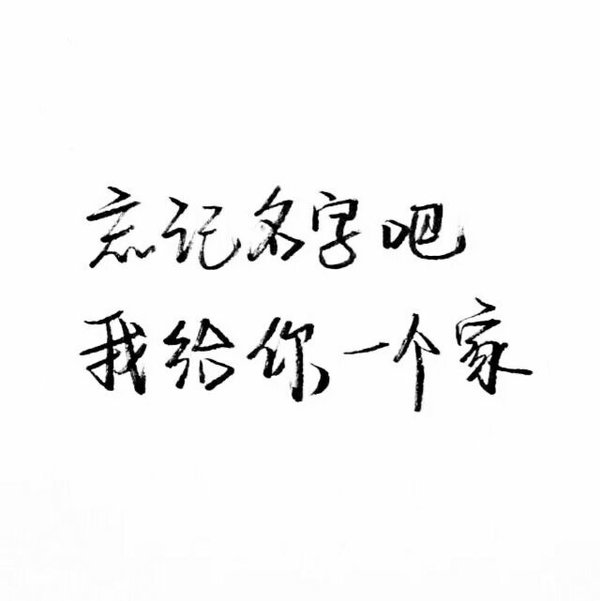 忘记名字吧
我给你一个家